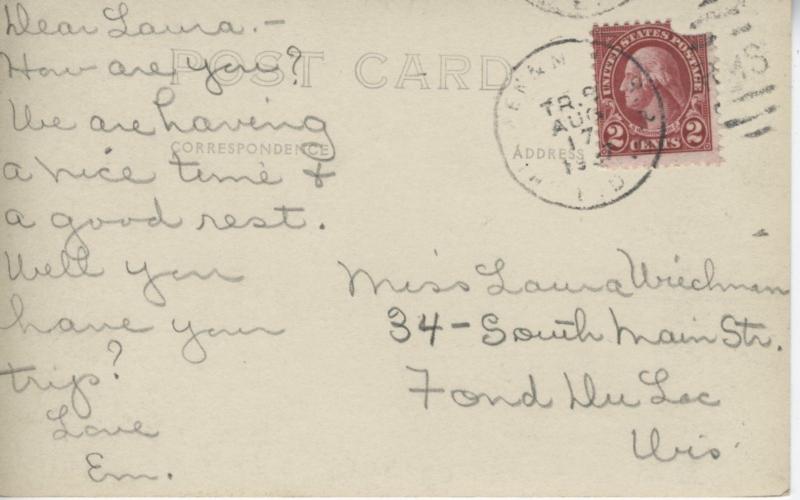 Dear Laura.-
How are you?
We are having
a nice time &
a good rest.
Well you
have your
trip?
Love
Em.
POST CARD
CORRESPONDENCE
ADDRESS
UNITED STATES POSTAGE
2 CENTS 2
TR.
AUG
17
Miss Laura Wiechman
34-South Main Str.
Fond Du Lac
Wis